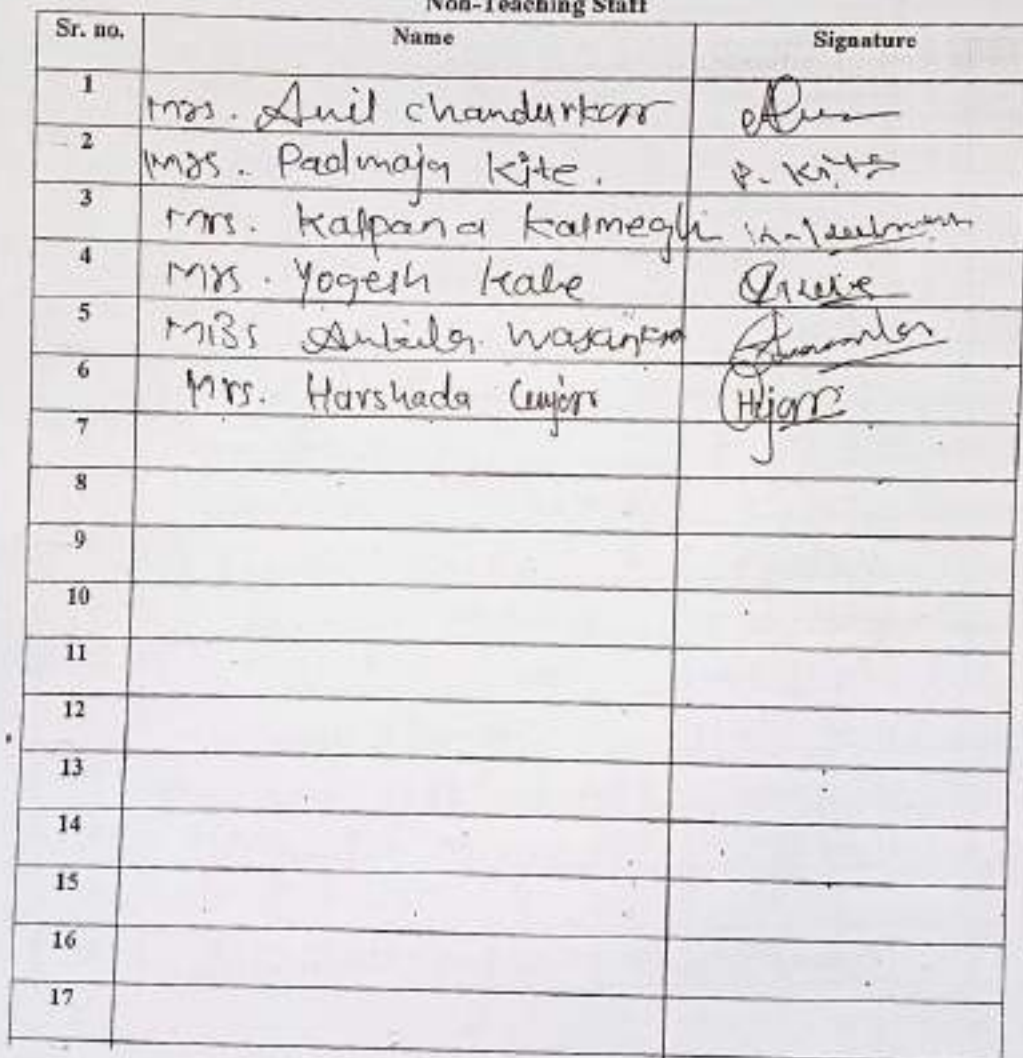 Non-Teaching Staff
Sr. no. Name Signature
1 Mrs. Anil chandurkar
2 Mrs. Padmaja Kite. P. Kite
3 Mrs. Kalpana Kalmegh
4 Mrs. Yogesh Kale
5 Miss
6 Mrs. Harshada
7
8
9
10
11
12
13
14
15
16
17